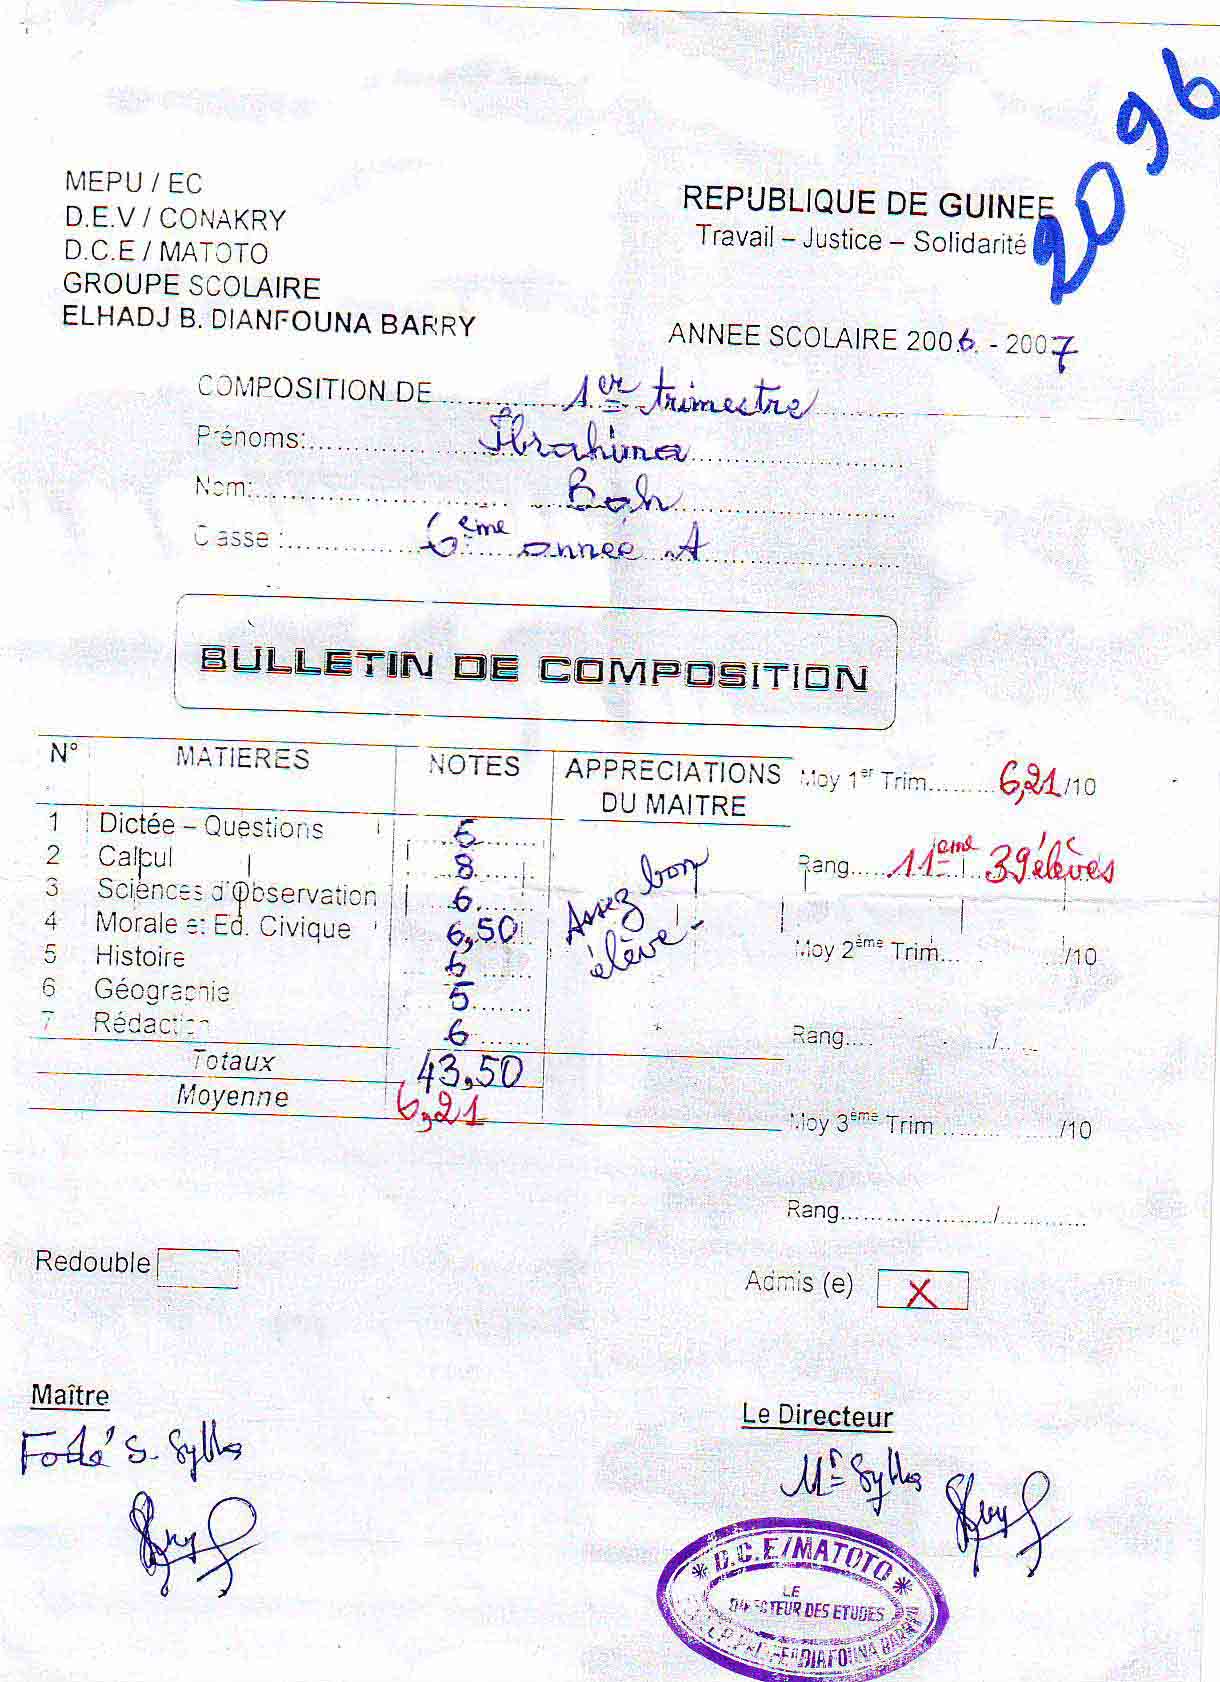 2096
MEPU / EC
D.E.V / CONAKRY
D.C.E / MATOTO
GROUPE SCOLAIRE
ELHADJ B. DIANFOUNA BARRY
REPUBLIQUE DE GUINEE
Travail – Justice – Solidarité
ANNEE SCOLAIRE 2006. - 2007
COMPOSITION DE 1er trimestre
Prénoms: Ibrahima
Nom: Bah
Classe : 6ème année A
BULLETIN DE COMPOSITION
N° MATIERES NOTES APPRECIATIONS DU MAITRE
1 Dictée – Questions 6
2 Calcul 8
3 Sciences d'Observation 6
4 Morale et Ed. Civique 6,50
5 Histoire 6
6 Géographie 5
7 Rédaction 6
Totaux 43,50
Moyenne 6,21
Assez bon
élève
Moy 1er Trim......... 6,21/10
Rang.... 11ème / 39 élèves
Moy 2ème Trim.... /10
Rang.... /
Moy 3ème Trim ............ /10
Rang..................../............
Redouble
Admis (e) X
Maître
Fodé S. Sylla
Le Directeur
Mr Sylla
* D.C.E/MATOTO *
LE
DIRECTEUR DES ETUDES
DIAFOUNA BARRY